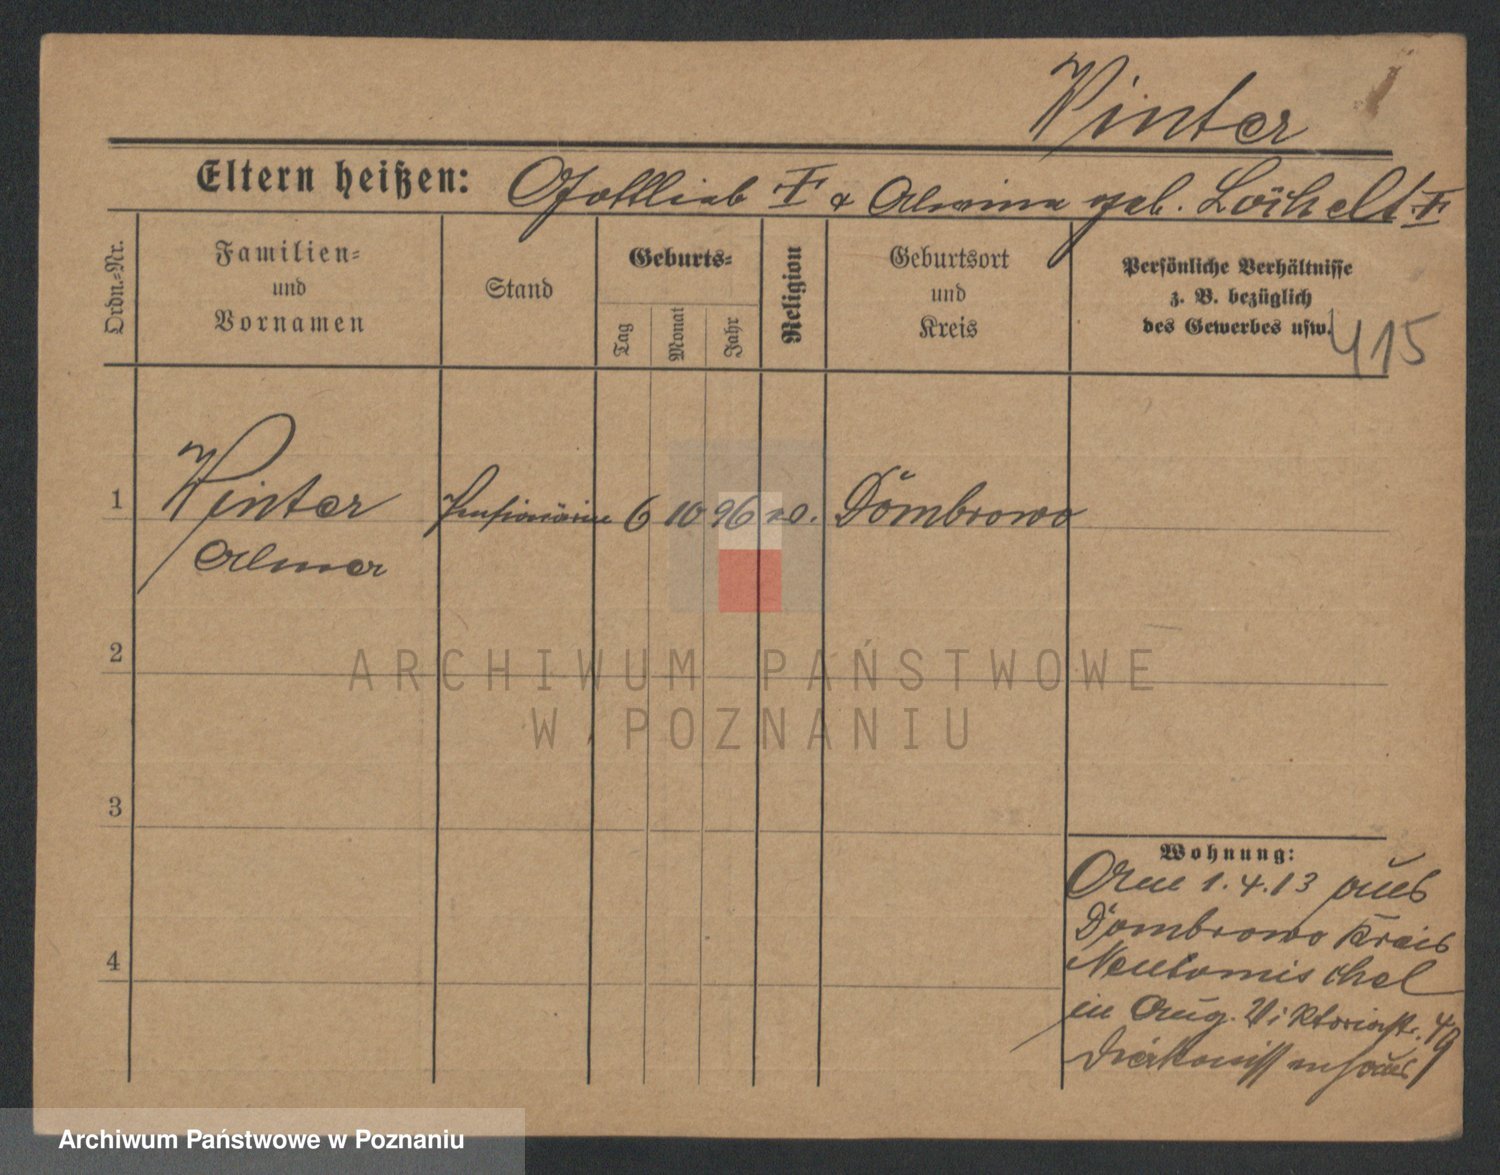 Winter
Eltern heißen: Gottlieb † & Alwina geb. Löchelt †
Ordn.-Nr.
Familien- und Vornamen
Stand
Geburts-
Tag
Monat
Jahr
Religion
Geburtsort und Kreis
Persönliche Verhältnisse
z. B. bezüglich
des Gewerbes usw.
415
1 Winter Pensionärin 6 10 96 Dombrowo
2
3
4
Wohnung:
Am 1.4.13 aus
Dombrowo Kreis
Neutomischel
in Aug. Viktoriastr. 49
Diakonissenhaus
ARCHIWUM PAŃSTWOWE
W POZNANIU
Archiwum Państwowe w Poznaniu